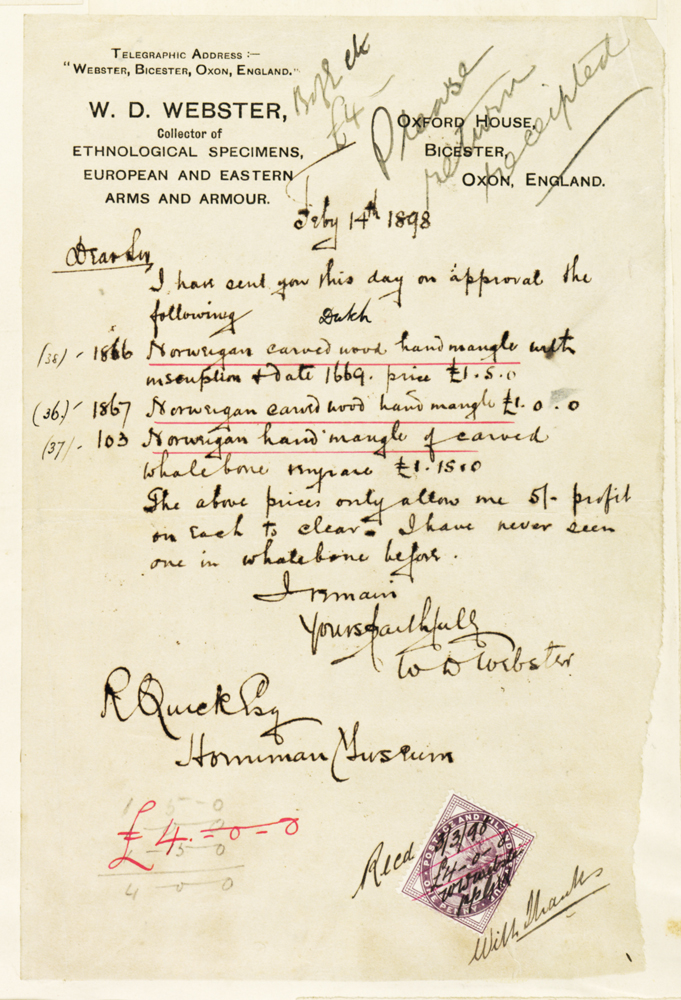 TELEGRAPHIC ADDRESS :—
"WEBSTER, BICESTER, OXON, ENGLAND."
W. D. WEBSTER,
Collector of
ETHNOLOGICAL SPECIMENS,
EUROPEAN AND EASTERN
ARMS AND ARMOUR.
£4—
Please
return
receipted
OXFORD HOUSE,
BICESTER,
OXON, ENGLAND.
Feby 14th 1898
Dear Sir,
I have sent you this day on approval the
following Dutch
(38) - 1866 Norwegian carved wood hand mangle with
inscription & date 1669. price £1.5.0
(36) - 1867 Norwegian carved wood hand mangle £1.0.0
(37) - 103 Norwegian hand mangle of carved
whalebone very rare £1.15.0
The above prices only allow me 5/- profit
on each to clear. I have never seen
one in whalebone before.
I remain
Yours faithfully
W D Webster
R Quick Esq
Horniman Museum
1 5 0
£4.-0-0
15 0
4 0 0
Recd
POSTAGE AND INLAND
3/3/98
£4-0-0
WD Webster
With Thanks